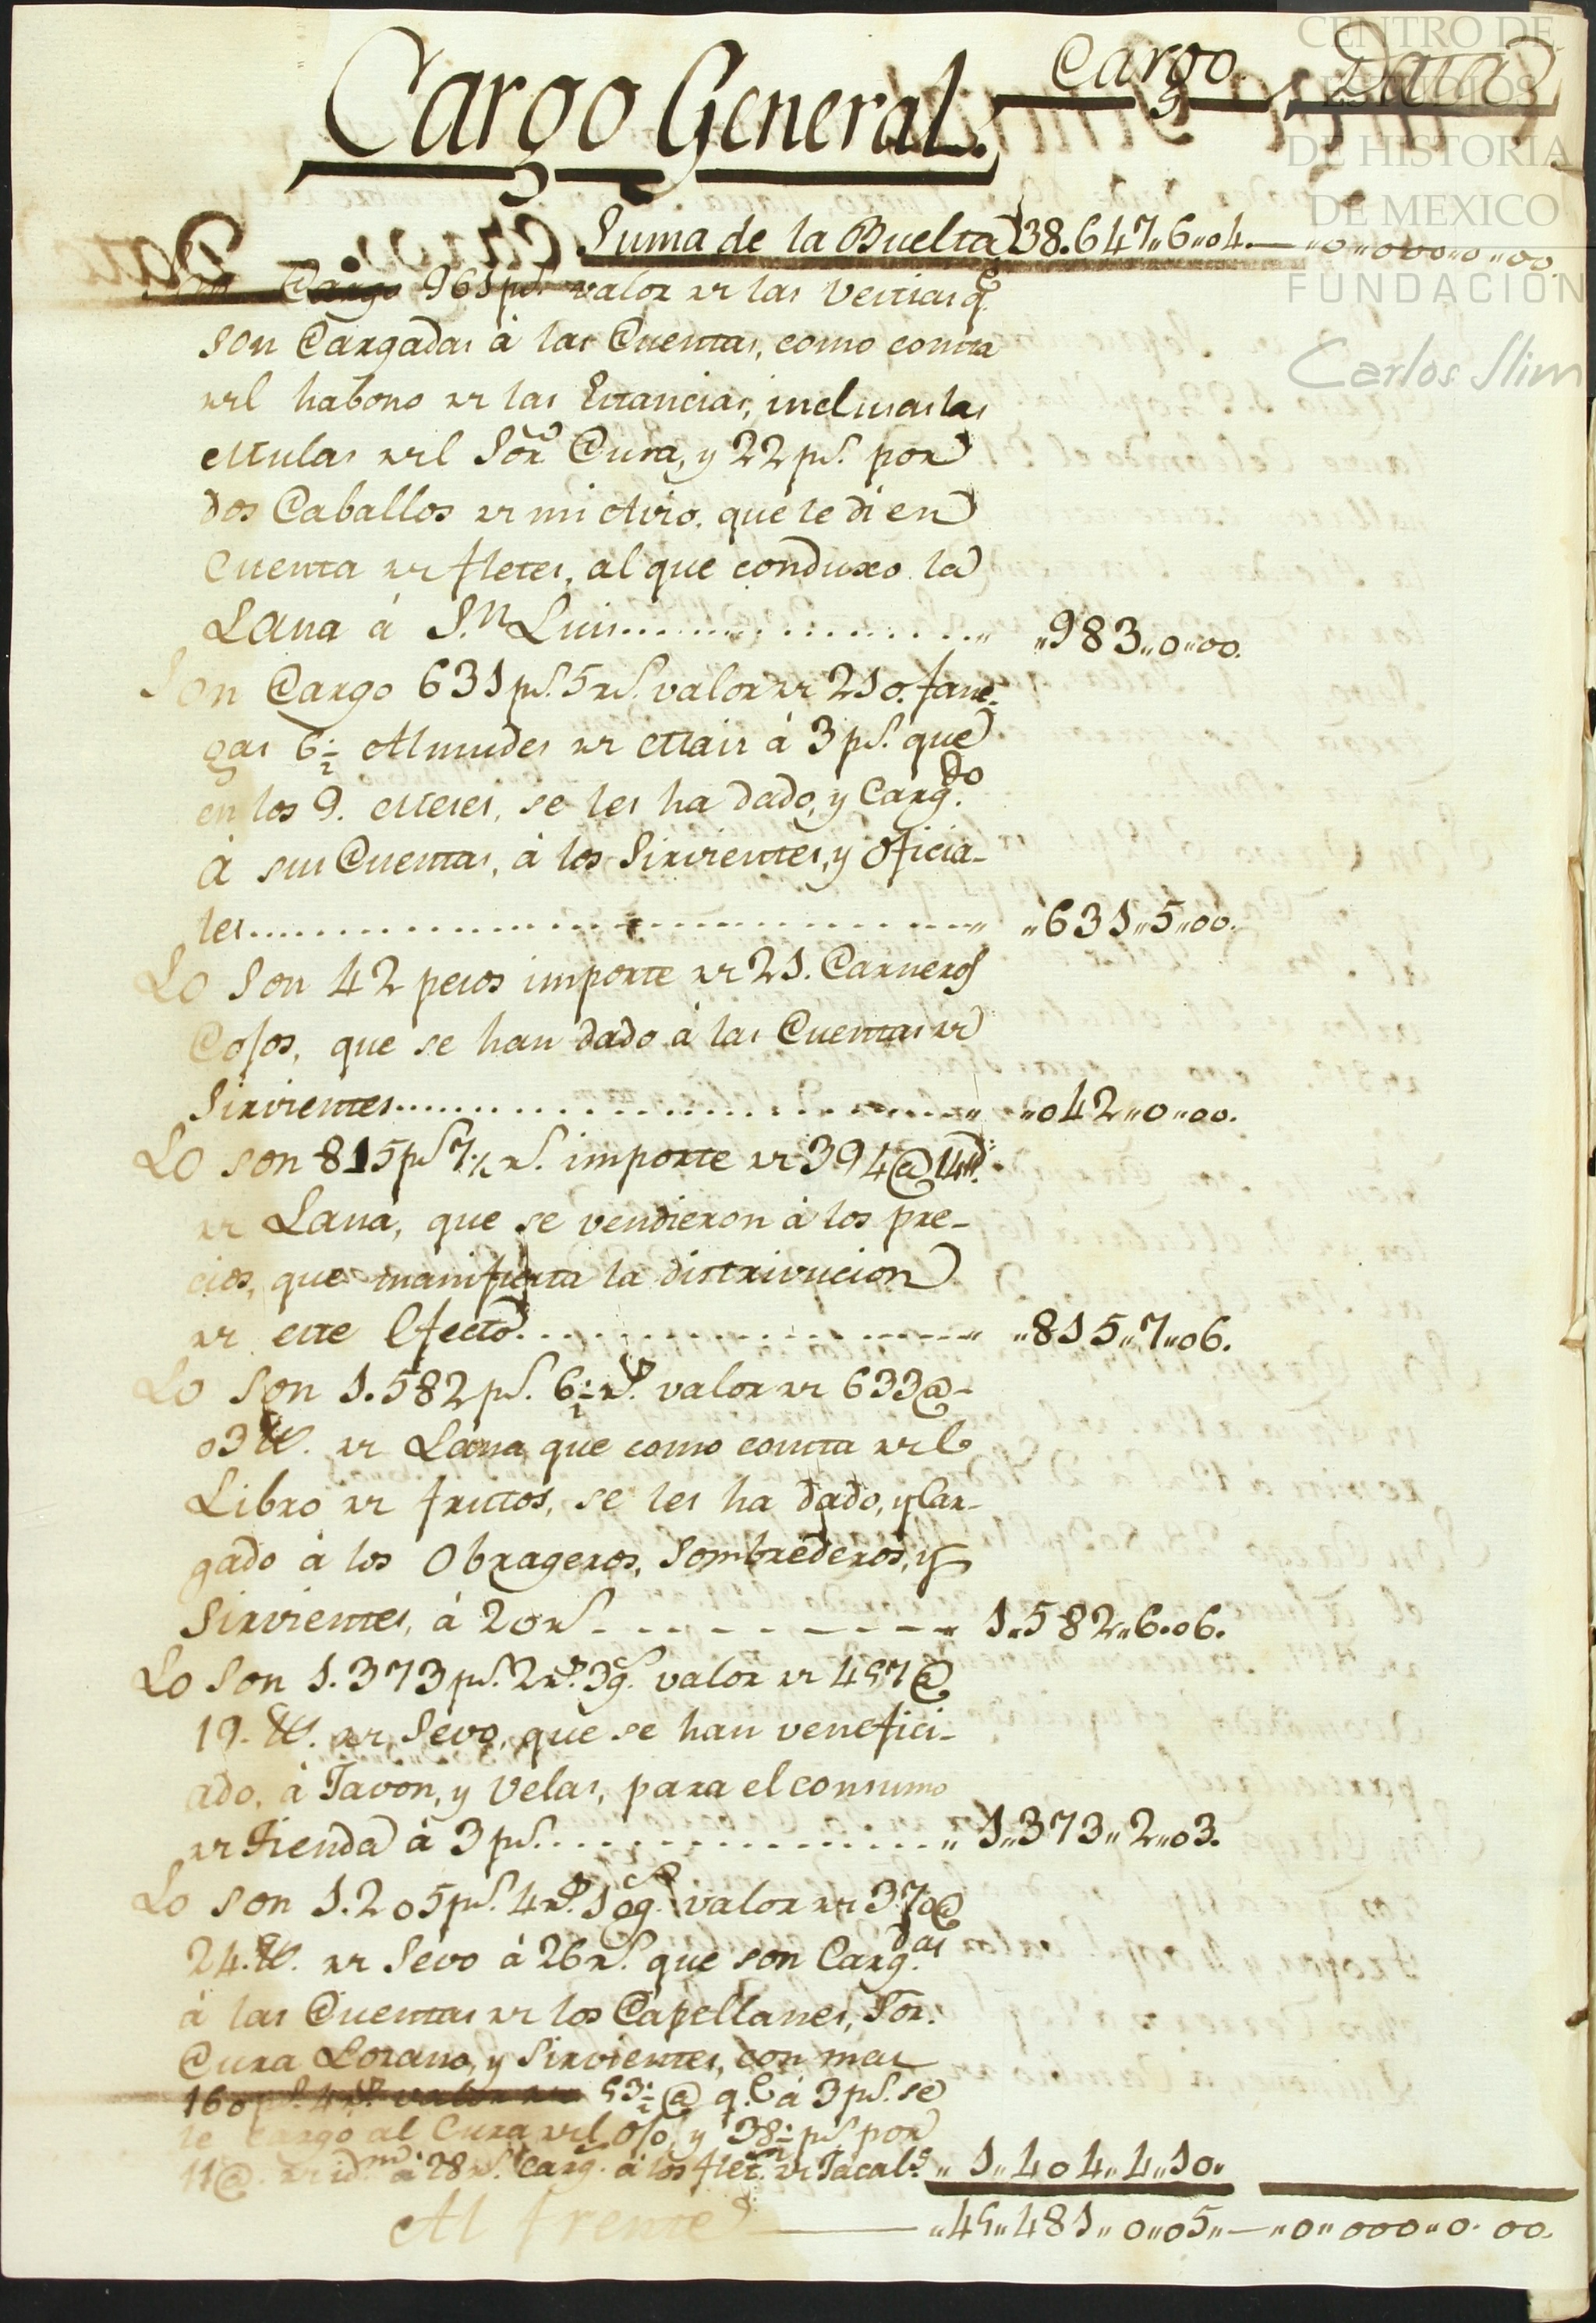 Cargo General. Cargo. Data
Suma de la Buelta 38.647,,6,,04. ,,0,,000,,0,,00.
Son Cargo 961 ps. valor de las Vestias q.e
son Cargadas à las Cuentas, como consta
del habono de las Estancias, inclusas las
Mulas del Sor. Cura, y 22 ps. por
dos Caballos de mi Avio, que le di en
Cuenta de fletes, al que conduxo la
Lana à S.n Luis ,,983,,0,,00.
Son Cargo 631 ps. 5 rs. valor de 210. fane-
gas 6 1/2 Almudes de Mais à 3 ps. que
en los 9. Meses, se les ha dado, y Carg.do
à sus Cuentas, à los Sirvientes, y oficia-
les ,,631,,5,,00.
Lo son 42 pesos importe de 21. Carneros
Cojos, que se han dado à las Cuentas de
Sirvientes ,,042,,0,,00.
Lo son 815 ps 7 1/2 rs. importe de 394 @ 14 lb.
de Lana, que se vendieron à los pre-
cios, que manifiesta la distrivucion
de este Efecto ,,815,,7,,06.
Lo son 1.582 ps. 6 1/2 rs. valor de 633 @-
03 lb. de Lana que como consta del
Libro de frutos, se les ha dado, y Car-
gado à los Obrageros, Sombrederos, y
Sirvientes, à 20 rs 1,,582,,6,,06.
Lo son 1.373 ps. 2 rs. 3 g.s valor de 457 @
19. lb. de Sevo, que se han venefici-
ado, à Javon, y Velas, para el consumo
de Tienda à 3 ps. ,,1,,373,,2,,03.
Lo son 1.205 ps. 4 rs. 10 g.s valor de 370 @
24. lb. de Sevo à 26 rs. que son Carg.das
à las Cuentas de los Capellanes, Sor.
Cura Lozano, y Sirvientes, con mas
160 ps. 4 rs. valor de 53 1/2 @ q.e à 3 ps. se
le cargo al Cura del ojo, y 38 1/2 ps por
11 @ de id.m à 28 rs. Carg. à los flet. de Jacal.s ,,1,,404,,4,,10,,
Al frente ,,45,,481,,0,,05,, ,,0,,000,,0,,00.
CENTRO DE
ESTUDIOS
DE HISTORIA
DE MEXICO
FUNDACION
Carlos Slim